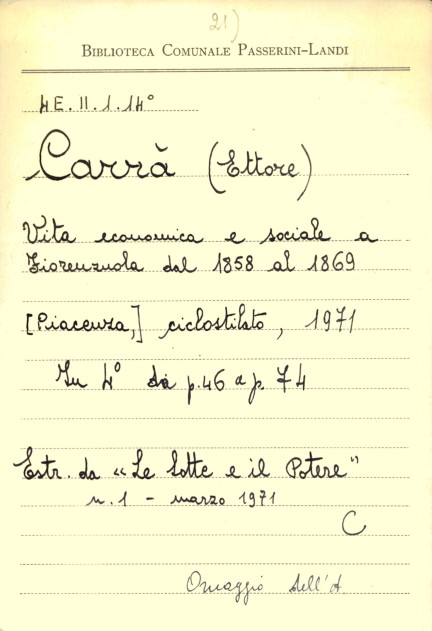 21)
BIBLIOTECA COMUNALE PASSERINI-LANDI
4E.II.1.14°
Carrà (Ettore)
Vita economica e sociale a
Fiorenzuola dal 1858 al 1869
[Piacenza,] ciclostilato, 1971
In 4° da p.46 a p. 74
Estr. da "Le lotte e il Potere"
n. 1 - marzo 1971
C
Omaggio dell'A.